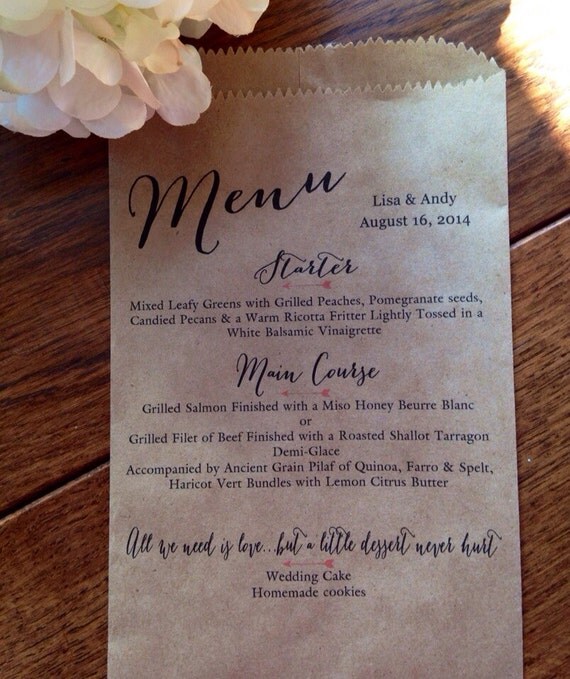 Menu
Lisa & Andy
August 16, 2014
Starter
Mixed Leafy Greens with Grilled Peaches, Pomegranate seeds,
Candied Pecans & a Warm Ricotta Fritter Lightly Tossed in a
White Balsamic Vinaigrette
Main Course
Grilled Salmon Finished with a Miso Honey Beurre Blanc
or
Grilled Filet of Beef Finished with a Roasted Shallot Tarragon
Demi-Glace
Accompanied by Ancient Grain Pilaf of Quinoa, Farro & Spelt,
Haricot Vert Bundles with Lemon Citrus Butter
All we need is love...but a little dessert never hurt
Wedding Cake
Homemade cookies